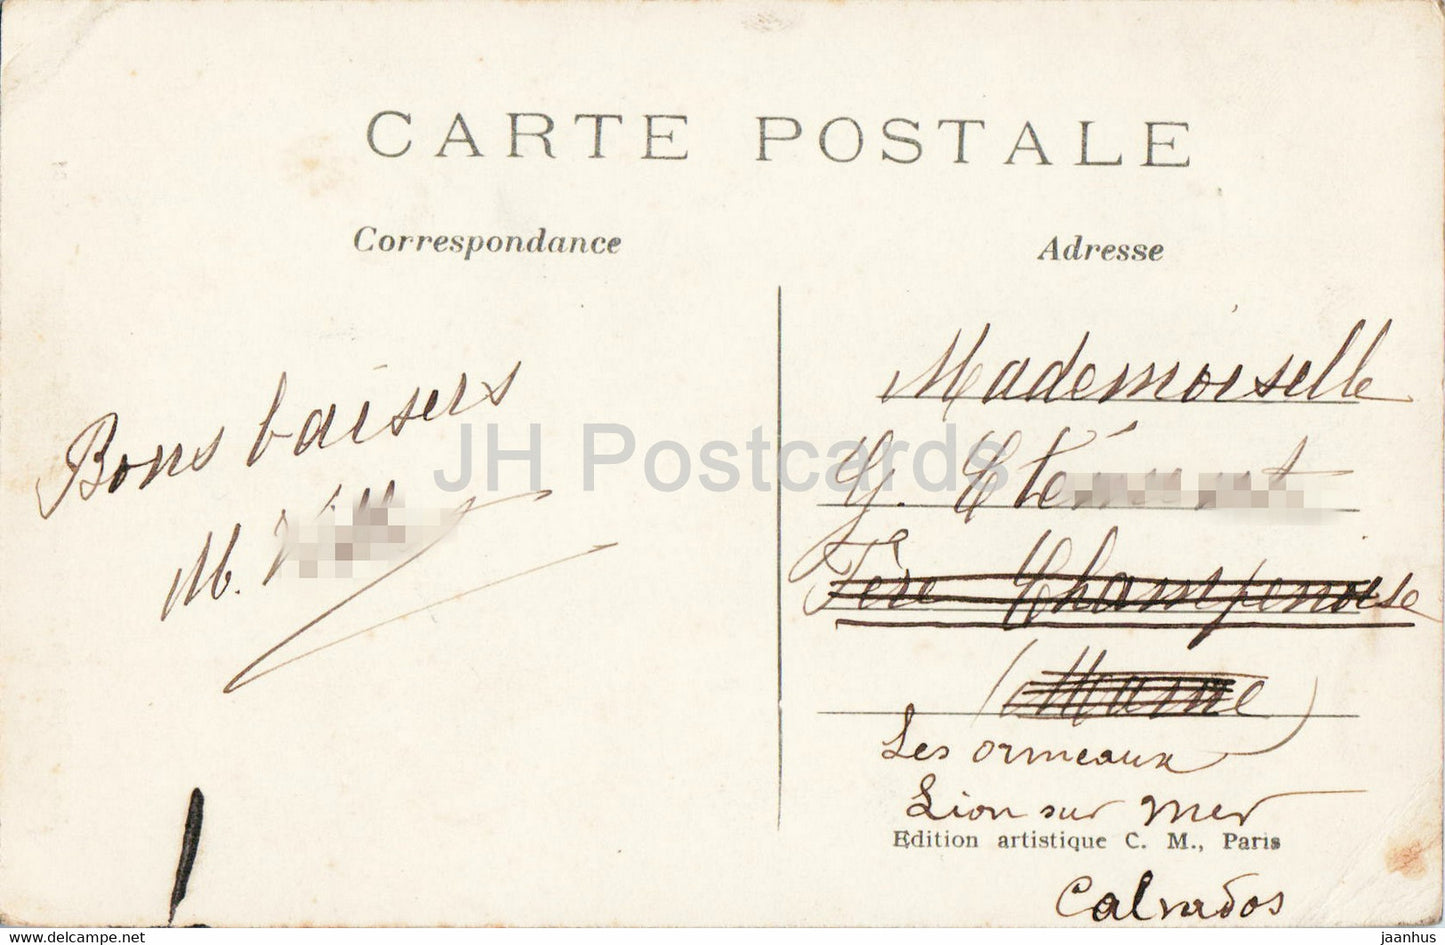 CARTE POSTALE
Correspondance
Adresse
Bons baisers
M.
Mademoiselle
G.
Fère Champenoise
(Marne)
Les ormeaux
Lion sur mer
Edition artistique C. M., Paris
Calvados
JH Postcards
jaanhus
www.delcampe.net